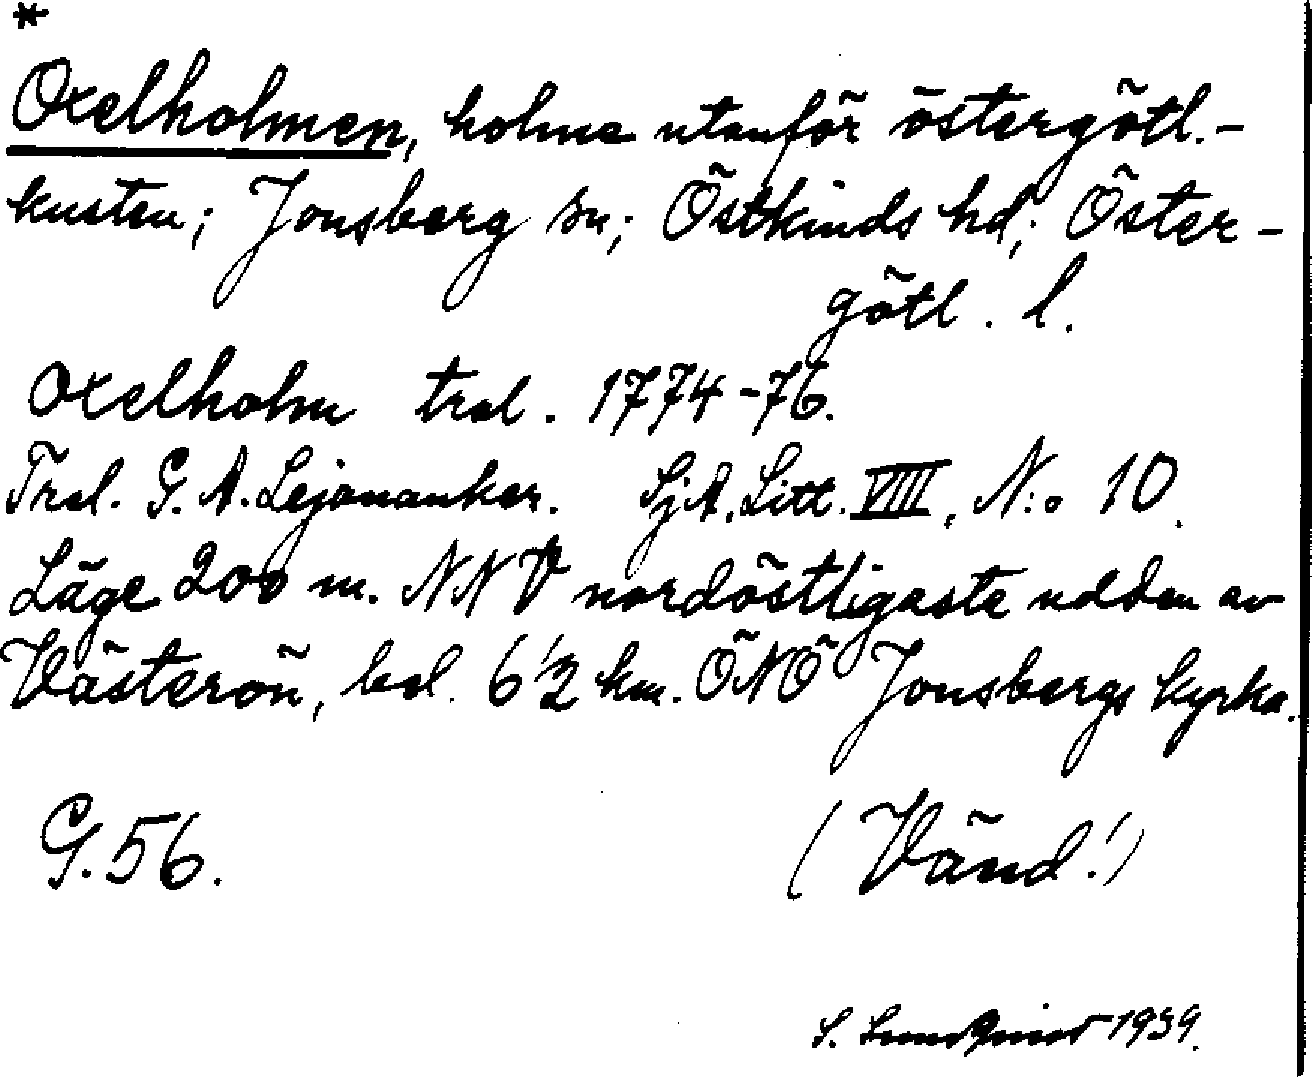 *
Oxelholmen, holme utanför östergötl.-
kusten; Jonsberg sn; Östkinds hd; Öster-
götl. l.
Oxelholm trol. 1774-76.
Trol. G. A. Lejonanker. SjA, Litt. VIII, N:o 10.
Läge 200 m. NNV nordöstligaste udden av
Västerön, bel. 6'2 km. ÖNÖ Jonsbergs kyrka.
G. 56.
(Vänd!)
S. Lundqvist 1939.